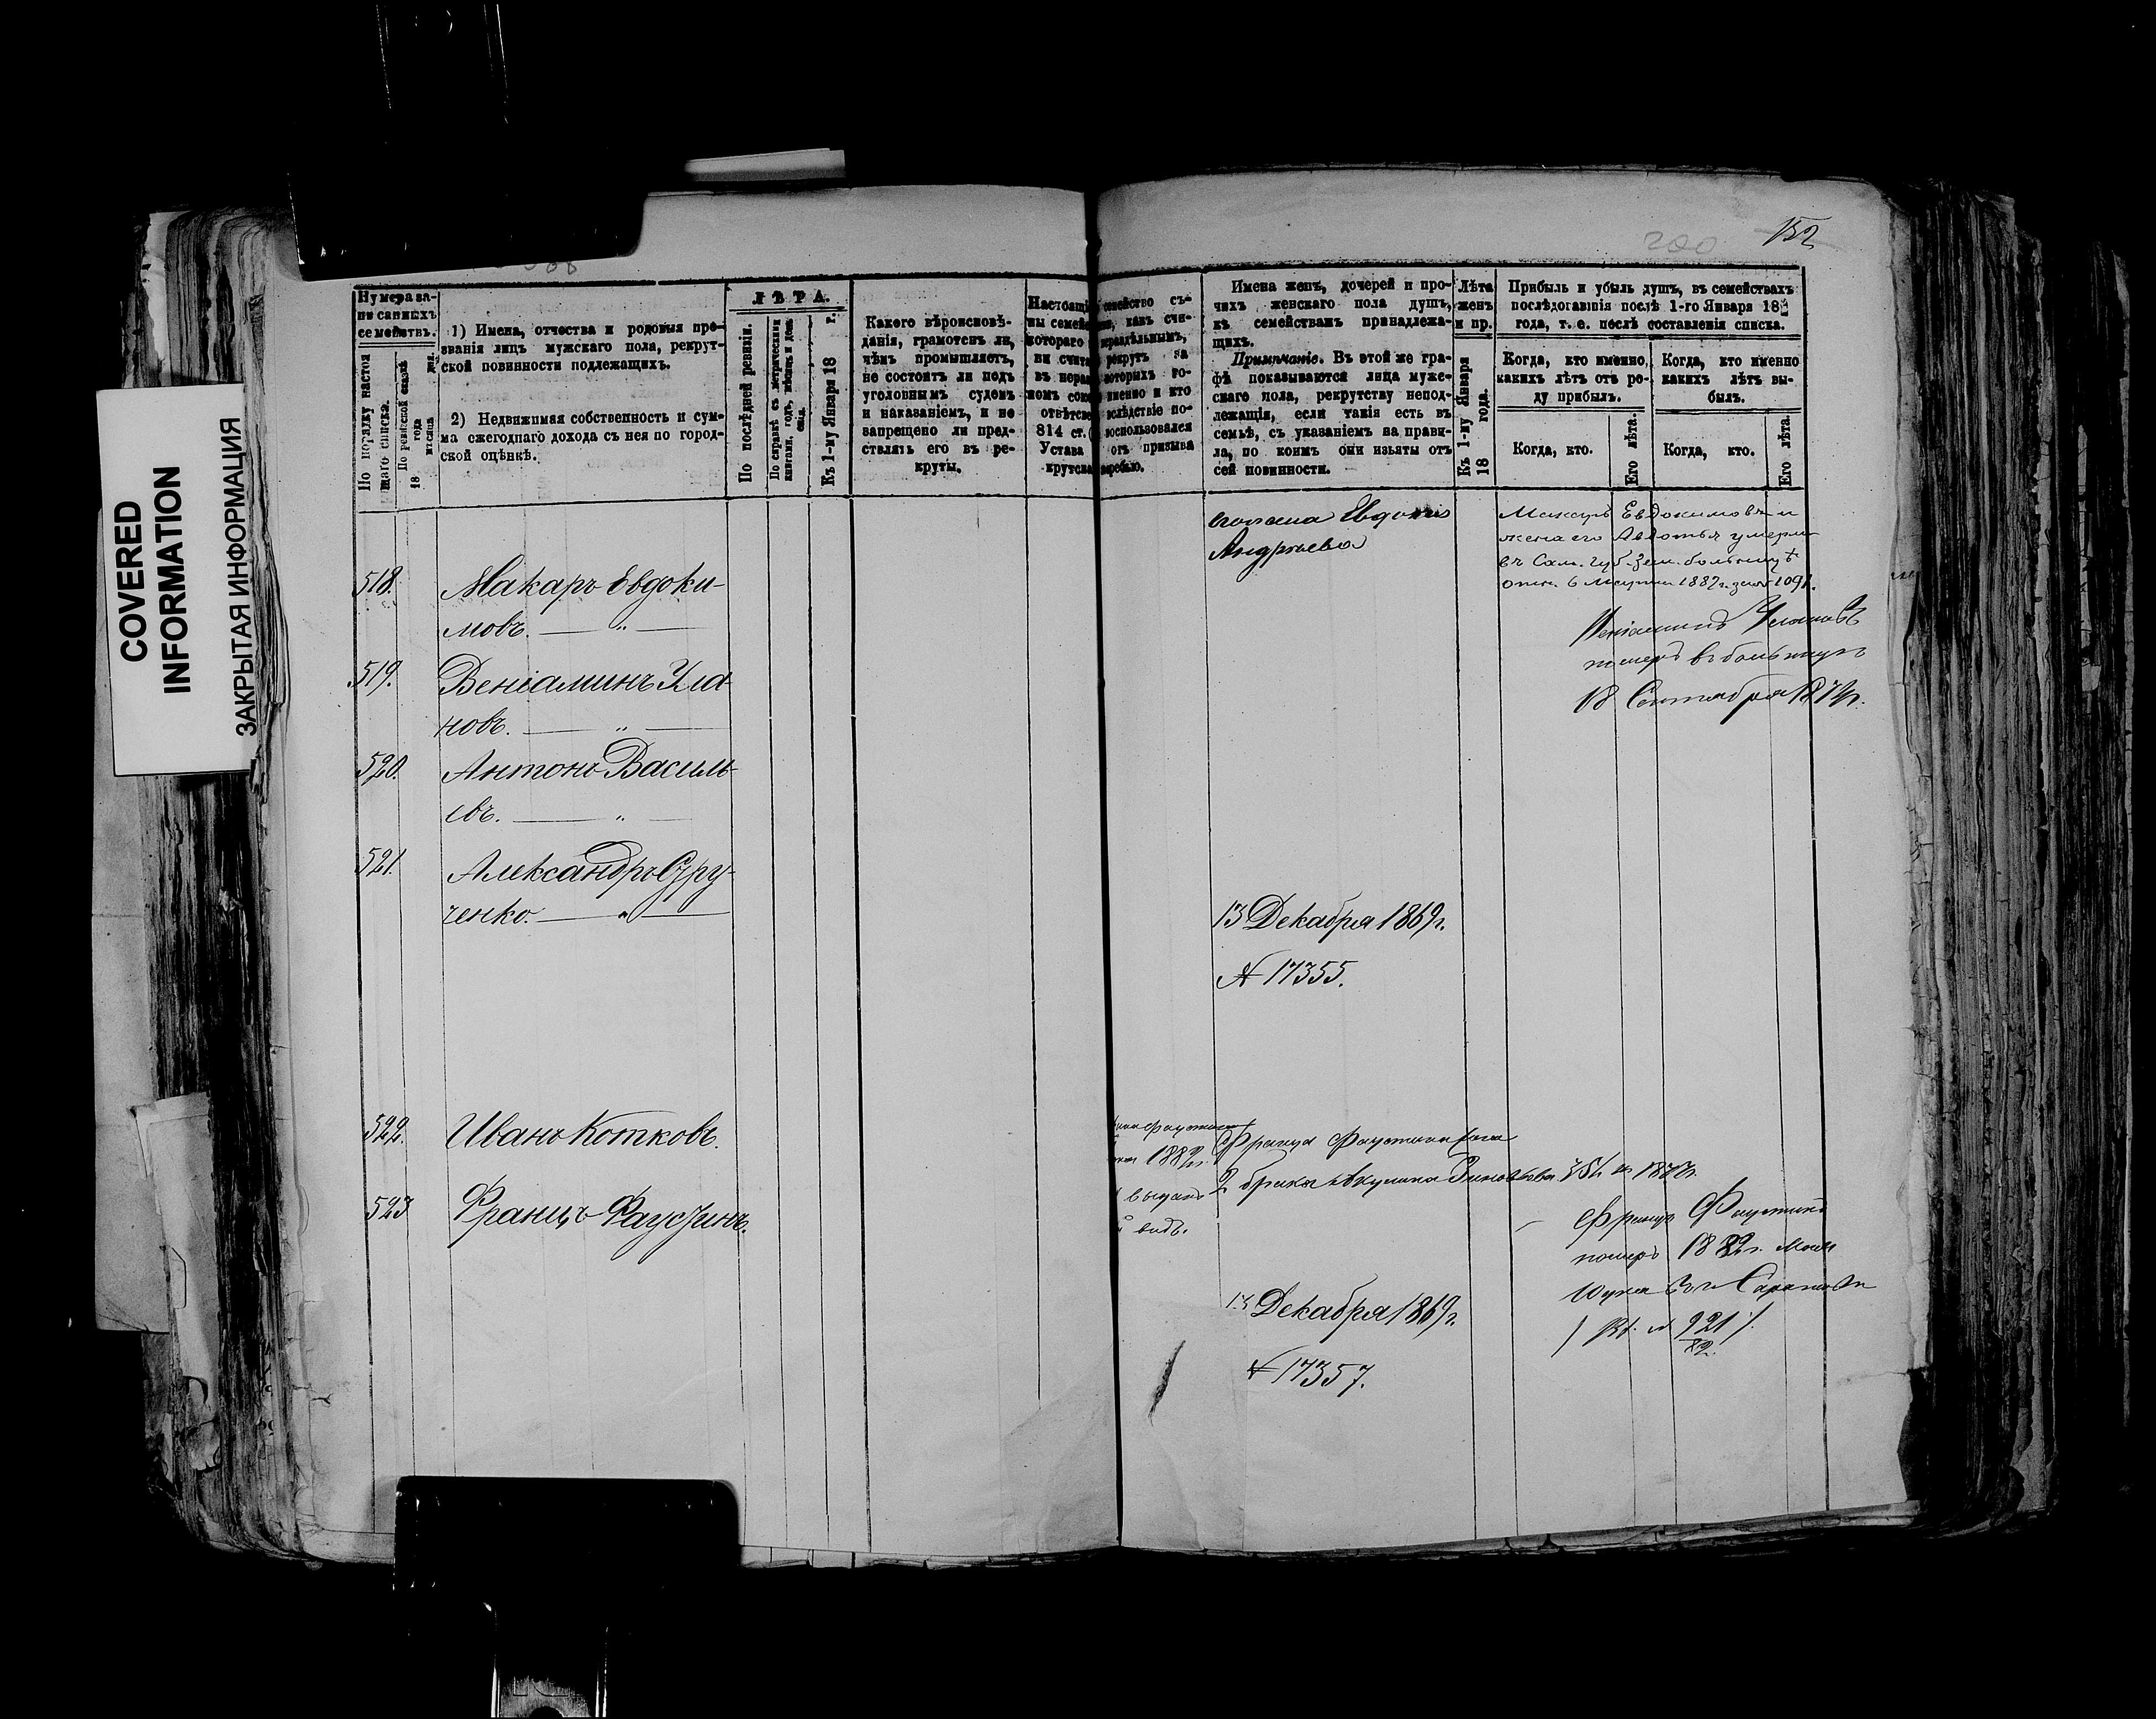 COVERED
INFORMATION
ЗАКРЫТАЯ ИНФОРМАЦИЯ
200
152
Нумера за-
писанныхъ
семействъ.
По порядку настоя
щаго списка.
По ревизской сказкѣ
18 года
мѣсяца дня.
1) Имена, отчества и родовыя про-
званія лицъ мужскаго пола, рекрут-
ской повинности подлежащихъ.
2) Недвижимая собственность и сум-
ма ежегоднаго дохода съ нея по город-
ской оцѣнкѣ.
ЛѢТА.
По послѣдней ревизіи.
По справкѣ съ метрическими
книгами, годъ, мѣсяцъ и день
Къ 1-му Января 18 г.
Какого вѣроисповѣ-
данія, грамотенъ ли,
чѣмъ промышляетъ,
не состоитъ ли подъ
уголовнымъ судомъ
и наказаніемъ, и не
запрещено ли пред-
ставлять его въ ре-
круты.
Настоящ
ны семей
котораго
ни счита
въ нераз
номъ сою
отвѣтств
814 ст.
Устава
крутска
семейство съ-
какъ счи-
нераздѣльнымъ,
рекрутъ за
которыхъ го-
именно и кто
вслѣдствіе по-
воспользовался
отъ призыва
жеребью.
Имена женъ, дочерей и про-
чихъ женскаго пола душъ,
къ семействамъ принадлежа-
щихъ.
Примѣчаніе. Въ этой же гра-
фѣ показываются лица муже-
скаго пола, рекрутству непод-
лежащія, если такія есть въ
семьѣ, съ указаніемъ на прави-
ла, по коимъ они изъяты отъ
сей повинности.
Лѣта
женъ
и пр.
Къ 1-му Января
18 года.
Прибыль и убыль душъ, въ семействахъ
послѣдовавшія послѣ 1-го Января 18
года, т. е. послѣ составленія списка.
Когда, кто именно,
какихъ лѣтъ отъ ро-
ду прибылъ.
Когда, кто именно
какихъ лѣтъ вы-
былъ.
Когда, кто.
Его лѣта.
Когда, кто.
Его лѣта.
Евдокия
Андреева
Макаръ Евдокимовъ и
жена его Авдотья умерли
въ Сам. губ. зем. больницѣ
отн. 6 1887г. за № 1091.
518. Макаръ Евдоки-
мовъ. — „ —
519. Веніаминъ Ула-
новъ. — „ —
Веніаминъ Улановъ
померъ въ больницѣ
18 Сентября 187 г.
520. Антонъ Василь-
евъ. — „ —
521. Александръ Стру-
ченко. — „ —
13 Декабря 1869г.
№ 17355.
522. Иванъ Котковъ.
Франца Фаустина жена
2 брака Акулина Зиновьева
1882г.
выданъ
видъ.
523 Францъ Фаустинъ.
Францъ Фаустинъ
померъ 1882г. Мая
10 дня въ г. Саратовѣ
№ 921
82.
13 Декабря 1869г.
№ 17357.